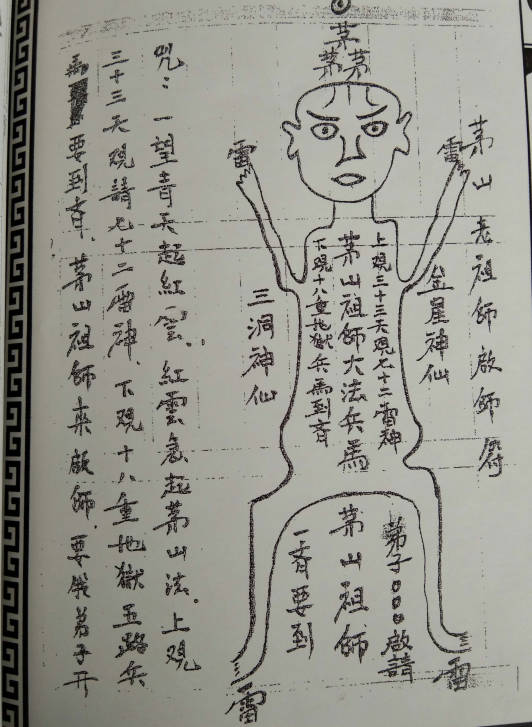 茅山老祖師啟師符
茅
茅茅
雷
雷
金星神仙
上覌三十三天覌七十二雷神
茅山祖師大法兵馬
下覌十八重地獄兵馬到斉
三洞神仙
弟子○○○啟請
茅山祖師
一斉要到
雷
雷
咒：一望青天起紅雲、紅雲急起茅山法、上覌
三十三天覌請七十二雷神、下覌十八重地獄五路兵
馬要到斉、茅山祖師来啟師、要俄弟子开